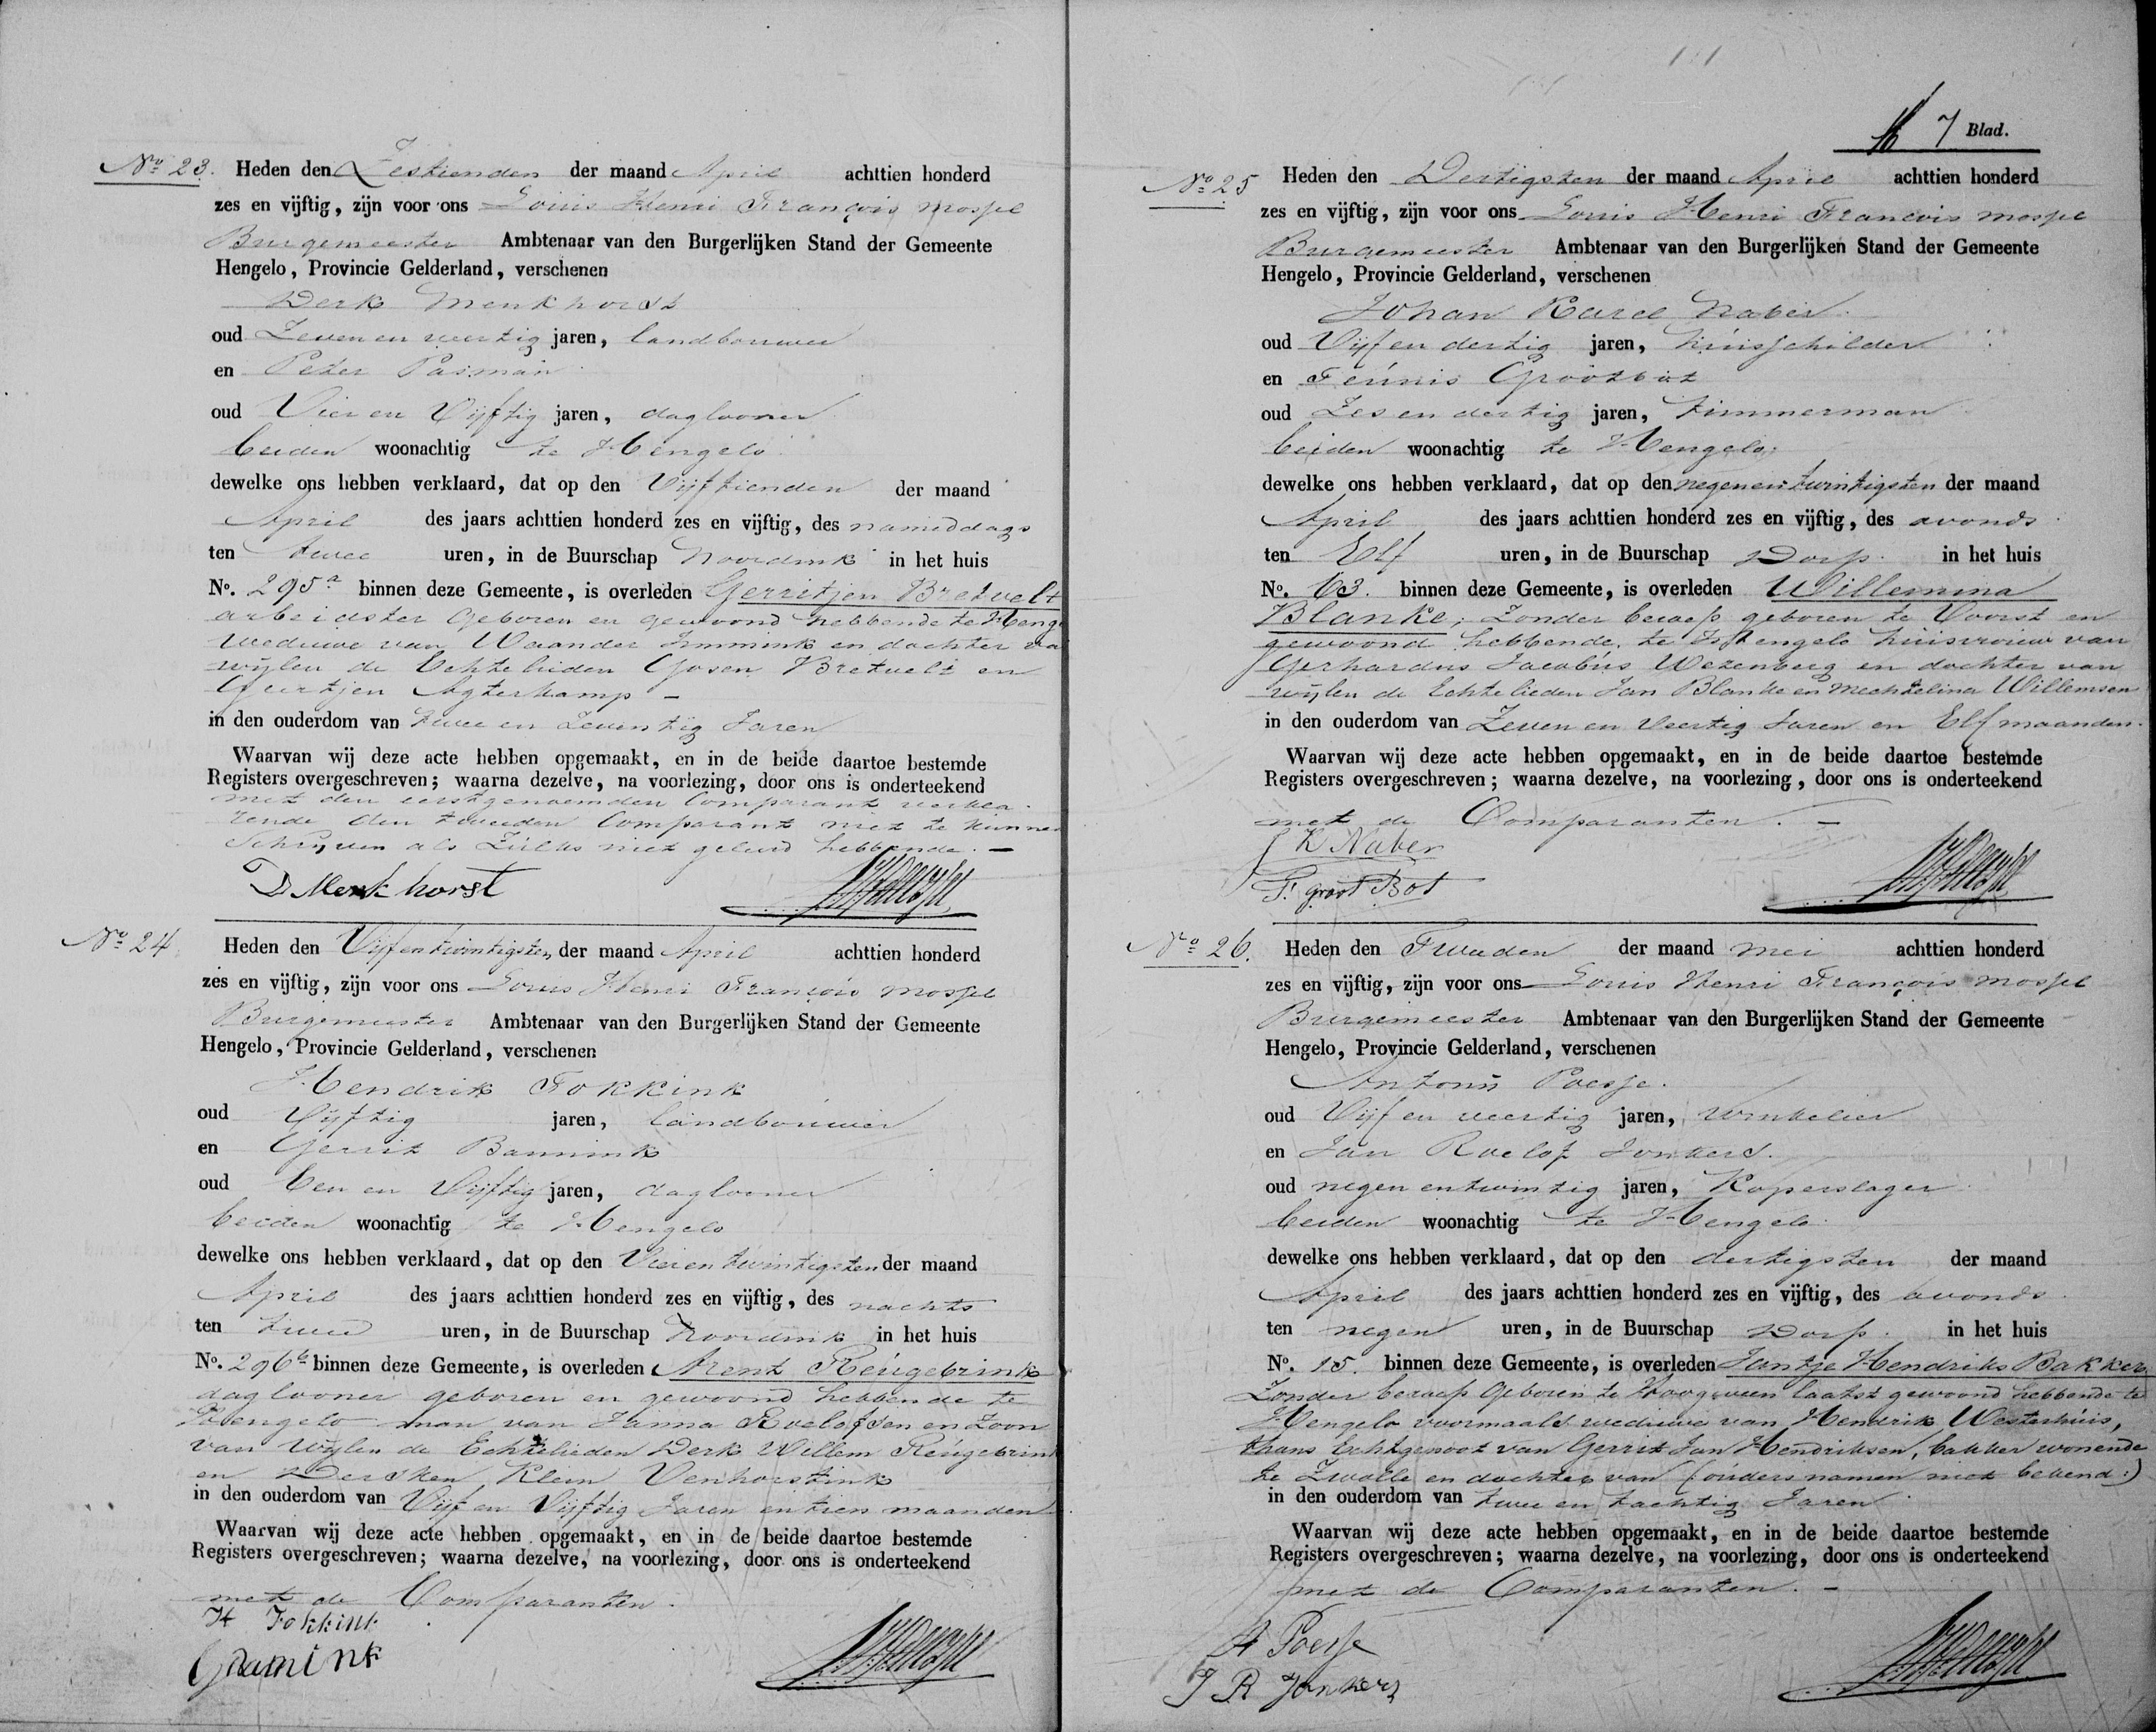 No 23. Heden den Zestienden der maand April achttien honderd
zes en vijftig, zijn voor ons Louis Henri François Mospel
Burgemeester Ambtenaar van den Burgerlijken Stand der Gemeente
Hengelo, Provincie Gelderland, verschenen
Derk Menkhorst
oud Zeven en veertig jaren, landbouwer
en Peter Pasman
oud Vier en Vijftig jaren, daglooner
beiden woonachtig te Hengelo
dewelke ons hebben verklaard, dat op den Vijftienden der maand
April des jaars achttien honderd zes en vijftig, des namiddags
ten twee uren, in de Buurschap Noordink in het huis
No. 295a binnen deze Gemeente, is overleden Gerritjen Bretvelt
arbeidster Geboren en gewoond hebbende te Heng
weduwe van Waander Immink en dochter va
wijlen de Echtelieden Gosen Bretvelt en
Geertjen Agterkamp -
in den ouderdom van twee en Zeventig Jaren
Waarvan wij deze acte hebben opgemaakt, en in de beide daartoe bestemde
Registers overgeschreven; waarna dezelve, na voorlezing, door ons is onderteekend
met den eerstgenoemden Comparant verkla-
rende den tweeden Comparant niet te kunnen
Schrijven als Zulks niet geleerd hebbende. -
D Menkhorst
No 24 Heden den Vijfentwintigsten der maand April achttien honderd
zes en vijftig, zijn voor ons Louis Henri François Mospel
Burgemeester Ambtenaar van den Burgerlijken Stand der Gemeente
Hengelo, Provincie Gelderland, verschenen
Hendrik Fokkink
oud Vijftig jaren, landbouwer
en Gerrit Bannink
oud Een en Vijftig jaren, daglooner
beiden woonachtig te Hengelo
dewelke ons hebben verklaard, dat op den Vierentwintigsten der maand
April des jaars achttien honderd zes en vijftig, des nachts
ten twee uren, in de Buurschap Noordink in het huis
No. 296b binnen deze Gemeente, is overleden Arent Reugebrink
daglooner geboren en gewoond hebbende te
Hengelo man van Janna Roelofsen en Zoon
van Wijlen de Echtelieden Derk Willem Reugebrink
en Dersken Klein Venhorstink
in den ouderdom van Vijf en Vijftig Jaren en tien maanden
Waarvan wij deze acte hebben opgemaakt, en in de beide daartoe bestemde
Registers overgeschreven; waarna dezelve, na voorlezing, door ons is onderteekend
met de Comparanten.
H Fokkink
7 Blad.
No 25 Heden den Dertigsten der maand April achttien honderd
zes en vijftig, zijn voor ons Louis Henri Francois Mospel
Burgemeester Ambtenaar van den Burgerlijken Stand der Gemeente
Hengelo, Provincie Gelderland, verschenen
Johan Karel Naber
oud Vijf en dertig jaren, huisschilder
en Teunis Grootbot
oud Zes en dertig jaren, timmerman
beiden woonachtig te Hengelo
dewelke ons hebben verklaard, dat op den negenentwintigsten der maand
April des jaars achttien honderd zes en vijftig, des avonds
ten Elf uren, in de Buurschap Dorp. in het huis
No. 63. binnen deze Gemeente, is overleden Willemina
Blanke, Zonder beroep geboren te Voorst en
gewoond hebbende te Hengelo huisvrouw van
Gerhardus Jacobus Wezenberg en dochter van
wijlen de Echtelieden Jan Blanke en Mechtelina Willemsen
in den ouderdom van Zeven en Veertig Jaren en Elf maanden.
Waarvan wij deze acte hebben opgemaakt, en in de beide daartoe bestemde
Registers overgeschreven; waarna dezelve, na voorlezing, door ons is onderteekend
met de Comparanten. -
J K Naber
T. groot Bot
No 26. Heden den Tweeden der maand Mei achttien honderd
zes en vijftig, zijn voor ons Louis Henri François Mospel
Burgemeester Ambtenaar van den Burgerlijken Stand der Gemeente
Hengelo, Provincie Gelderland, verschenen
Antonij Poesse.
oud Vijf en veertig jaren, winkelier
en Jan Roelof Jonkers.
oud negen en twintig jaren, Koperslager
beiden woonachtig te Hengelo
dewelke ons hebben verklaard, dat op den dertigsten der maand
April des jaars achttien honderd zes en vijftig, des avonds
ten negen uren, in de Buurschap Dorp. in het huis
No. 15. binnen deze Gemeente, is overleden Jantje Hendriks Bakker
Zonder beroep Geboren te Hoogeveen laatst gewoond hebbende te
Hengelo voormaals weduwe van Hendrik Westerhuis,
thans Echtgenoot van Gerrit Jan Hendriksen, bakker wonende
te Zwolle en dochter van (ouders namen niet bekend:)
in den ouderdom van twee en tachtig Jaren
Waarvan wij deze acte hebben opgemaakt, en in de beide daartoe bestemde
Registers overgeschreven; waarna dezelve, na voorlezing, door ons is onderteekend
met de Comparanten. -
A Poesse
J R Jonkers